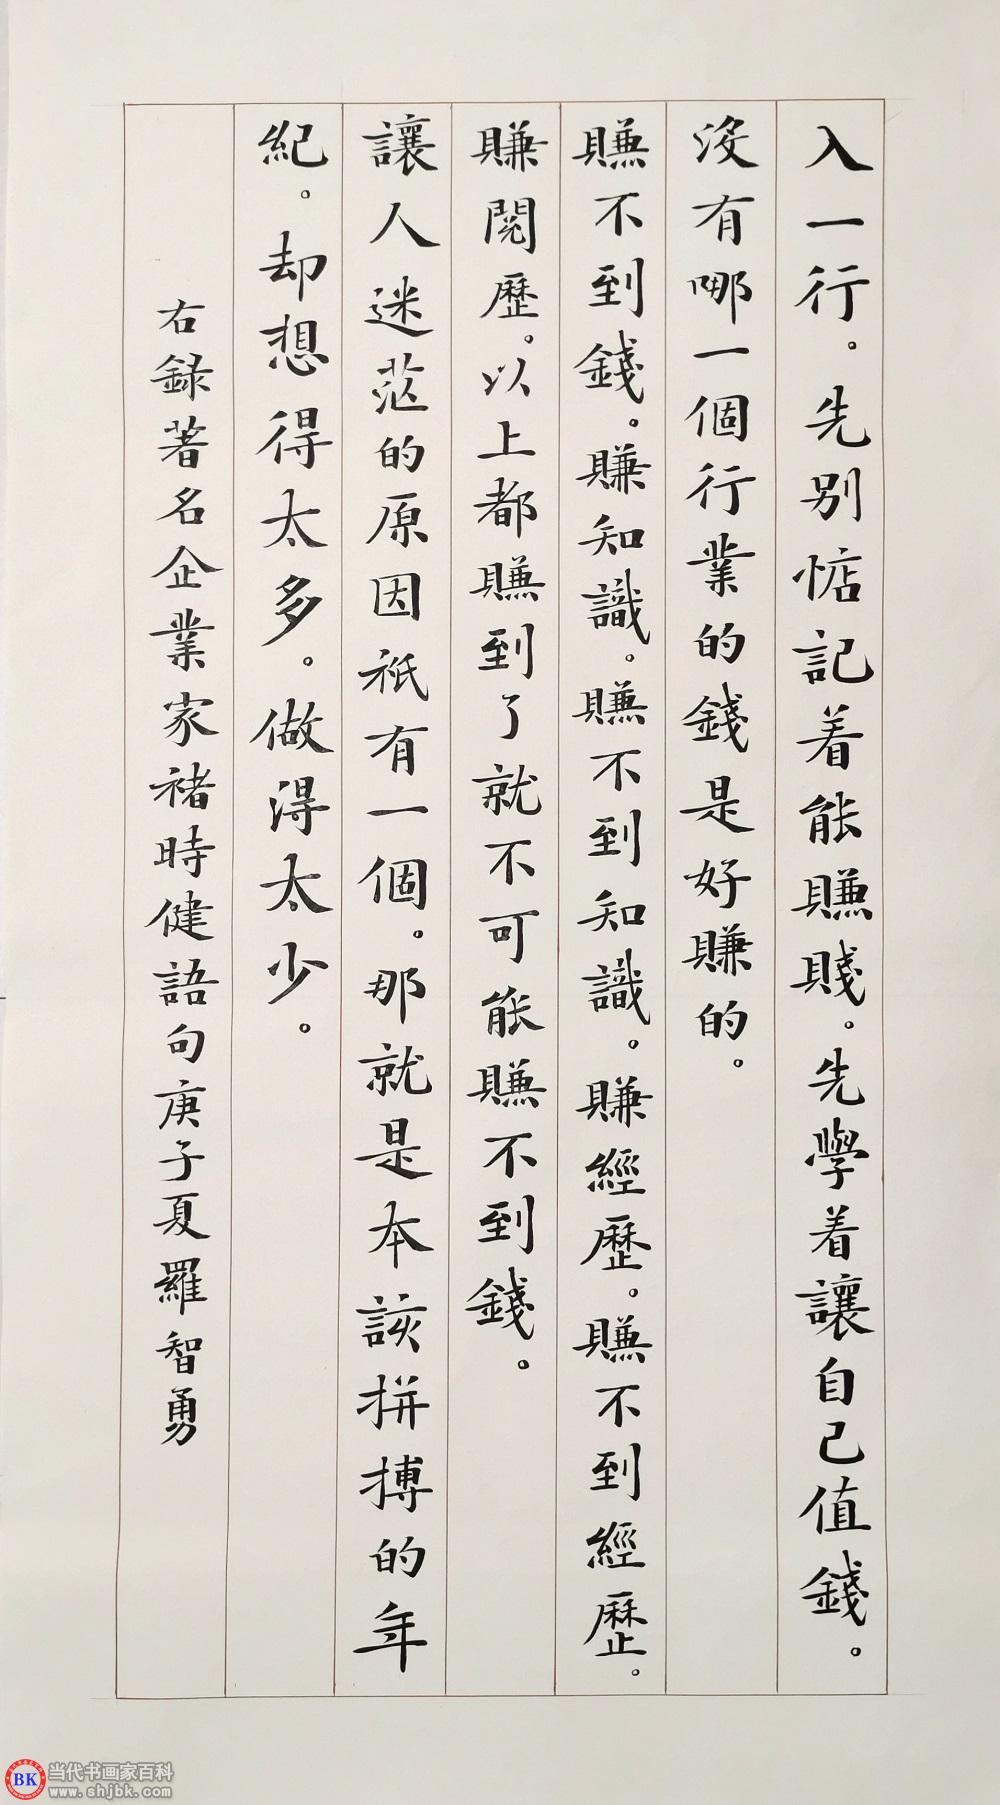 入一行。先别惦記着能賺賤。先學着讓自己值錢。
没有哪一個行業的錢是好賺的。
賺不到錢。賺知識。賺不到知識。賺經歷。賺不到經歷。
賺閱歷。以上都賺到了就不可能賺不到錢。
讓人迷茫的原因祇有一個。那就是本該拼搏的年
紀。却想得太多。做得太少。
右録著名企業家褚時健語句庚子夏羅智勇
BK 当代书画家百科
www.shjbk.com